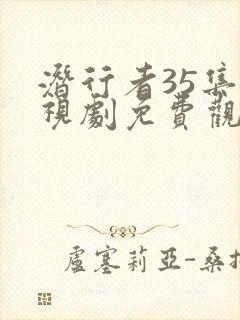 潛行者35集
視劇免費觀
盧塞莉亞-桑